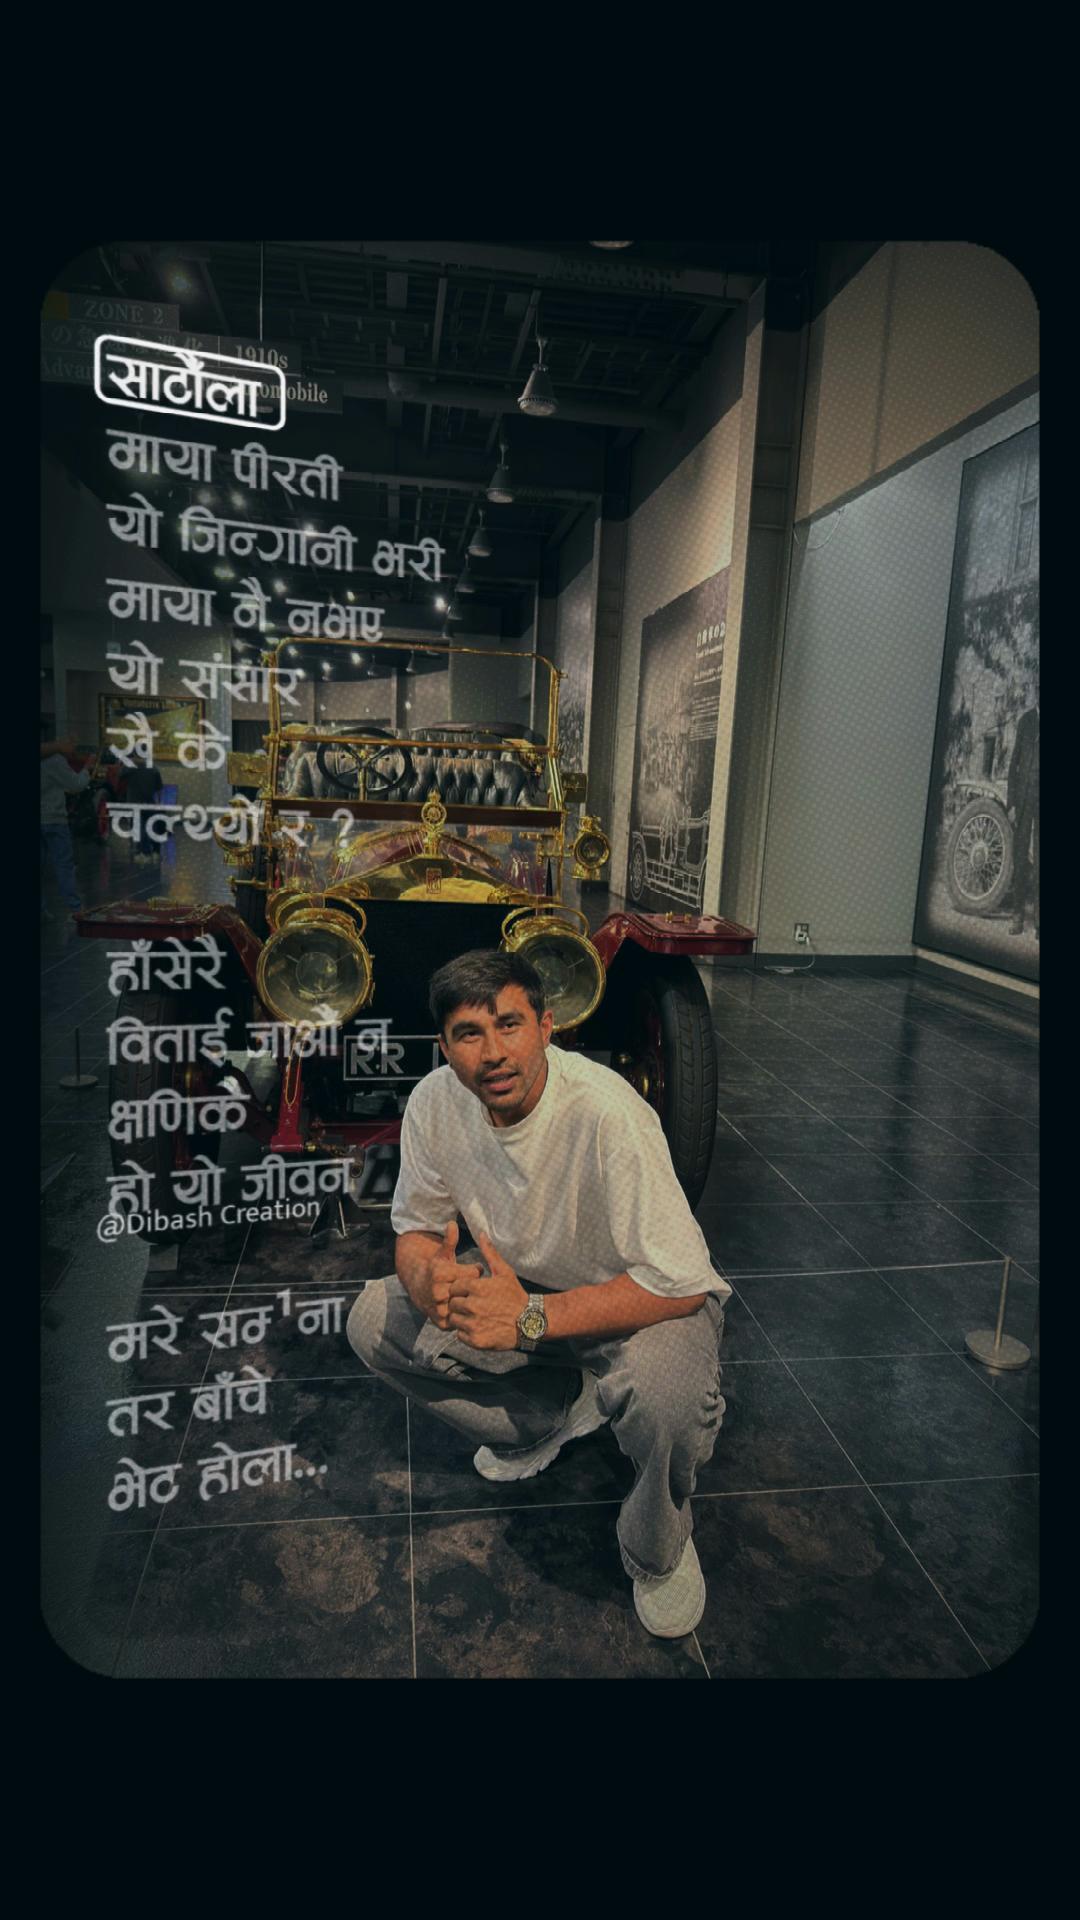 ZONE 2
1910s
साटौँला
माया पीरती
यो जिन्गानी भरी
माया नै नभए
यो संसार
खै के
चल्थ्यो र ?
हाँसेरै
विताई जाऔ न
क्षणिकै
हो यो जीवन
@Dibash Creation
मरे सम्¹ना
तर बाँचे
भेट होला...
R.R